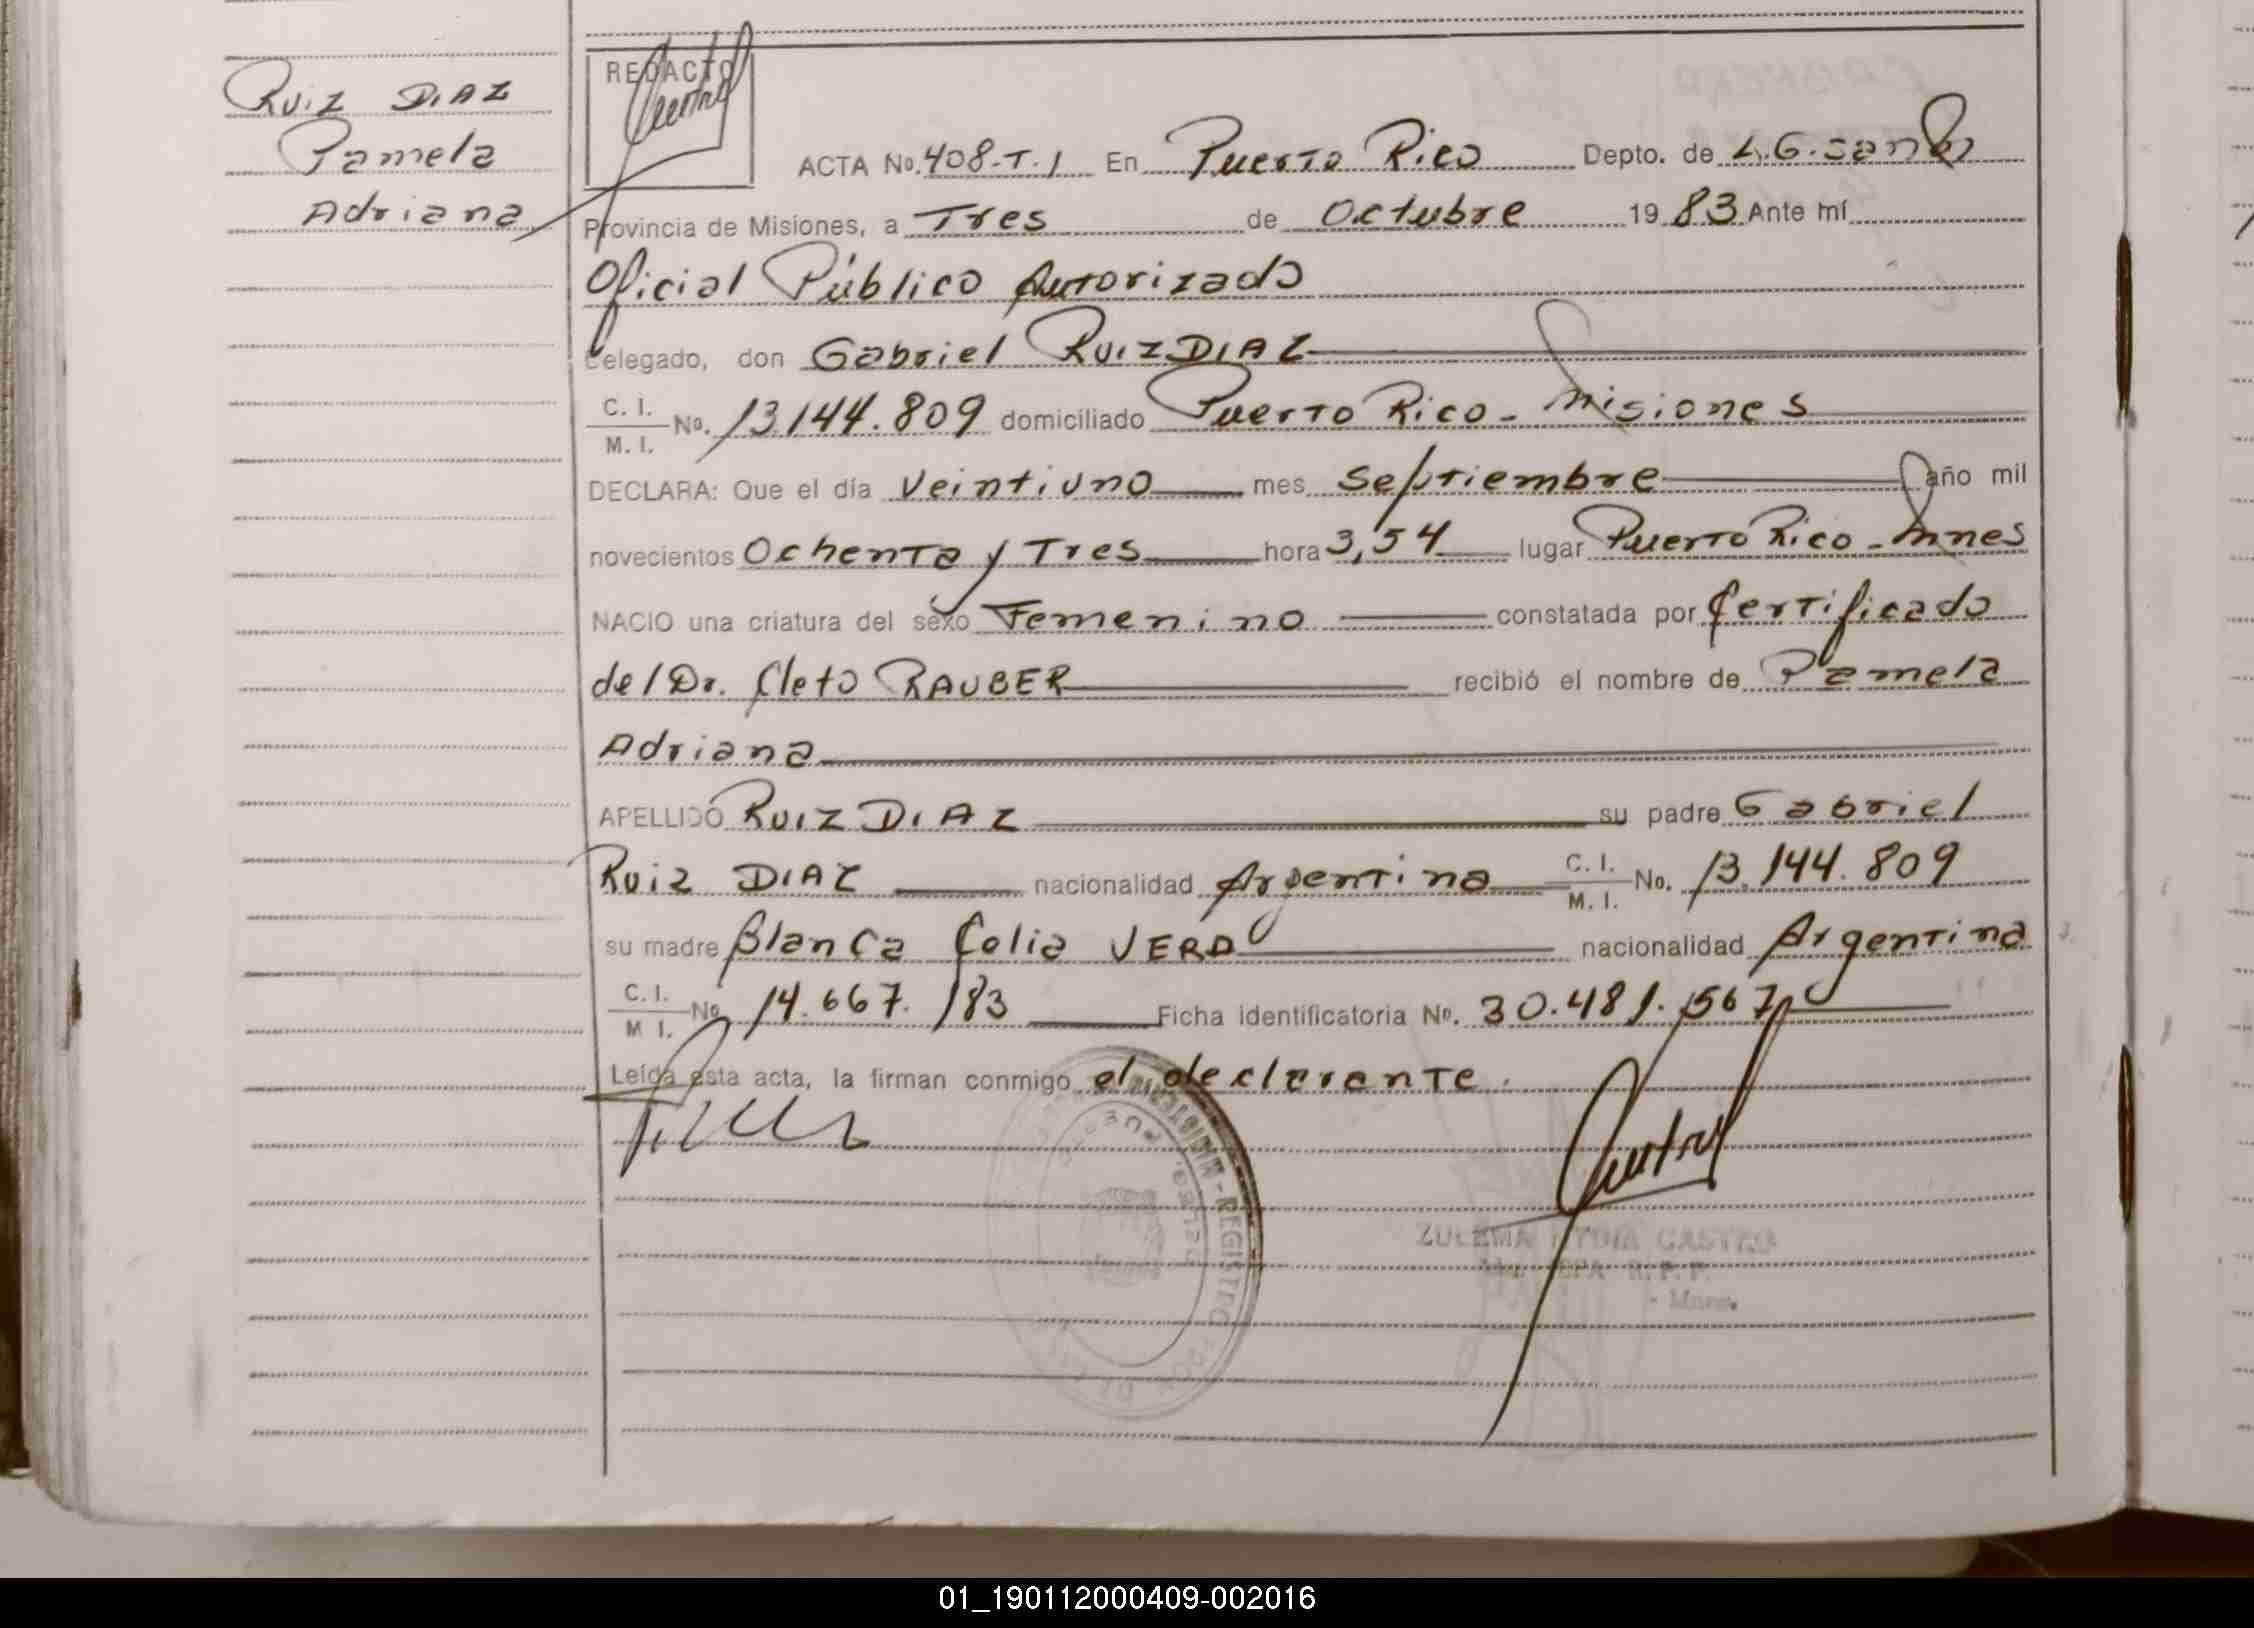 Ruiz DIAZ
Pamela
Adriana
REDACTO
ACTA No. 408-T.1 En Puerto Rico Depto. de L.G. San
Provincia de Misiones, a Tres de Octubre 1983 Ante mí
Oficial Público Autorizado
Delegado, don Gabriel RUIZ DIAZ
C. I.
M. I. No. 13.144.809 domiciliado Puerto Rico - Misiones
DECLARA: Que el día Veintiuno mes Septiembre año mil
novecientos Ochenta y Tres hora 3,54 lugar Puerto Rico - Mnes
NACIO una criatura del sexo Femenino constatada por Certificado
del Dr. Cleto RAUBER recibió el nombre de Pamela
Adriana
APELLIDO RUIZ DIAZ su padre Gabriel
Ruiz DIAZ nacionalidad Argentina C. I. M. I. No. 13.144.809
su madre Blanca Celia VERA nacionalidad Argentina
C. I. M I. No 14.667.183 Ficha identificatoria No. 30.481.567
Leída esta acta, la firman conmigo el declarante.
ZULEMA CASTRO
01_190112000409-002016